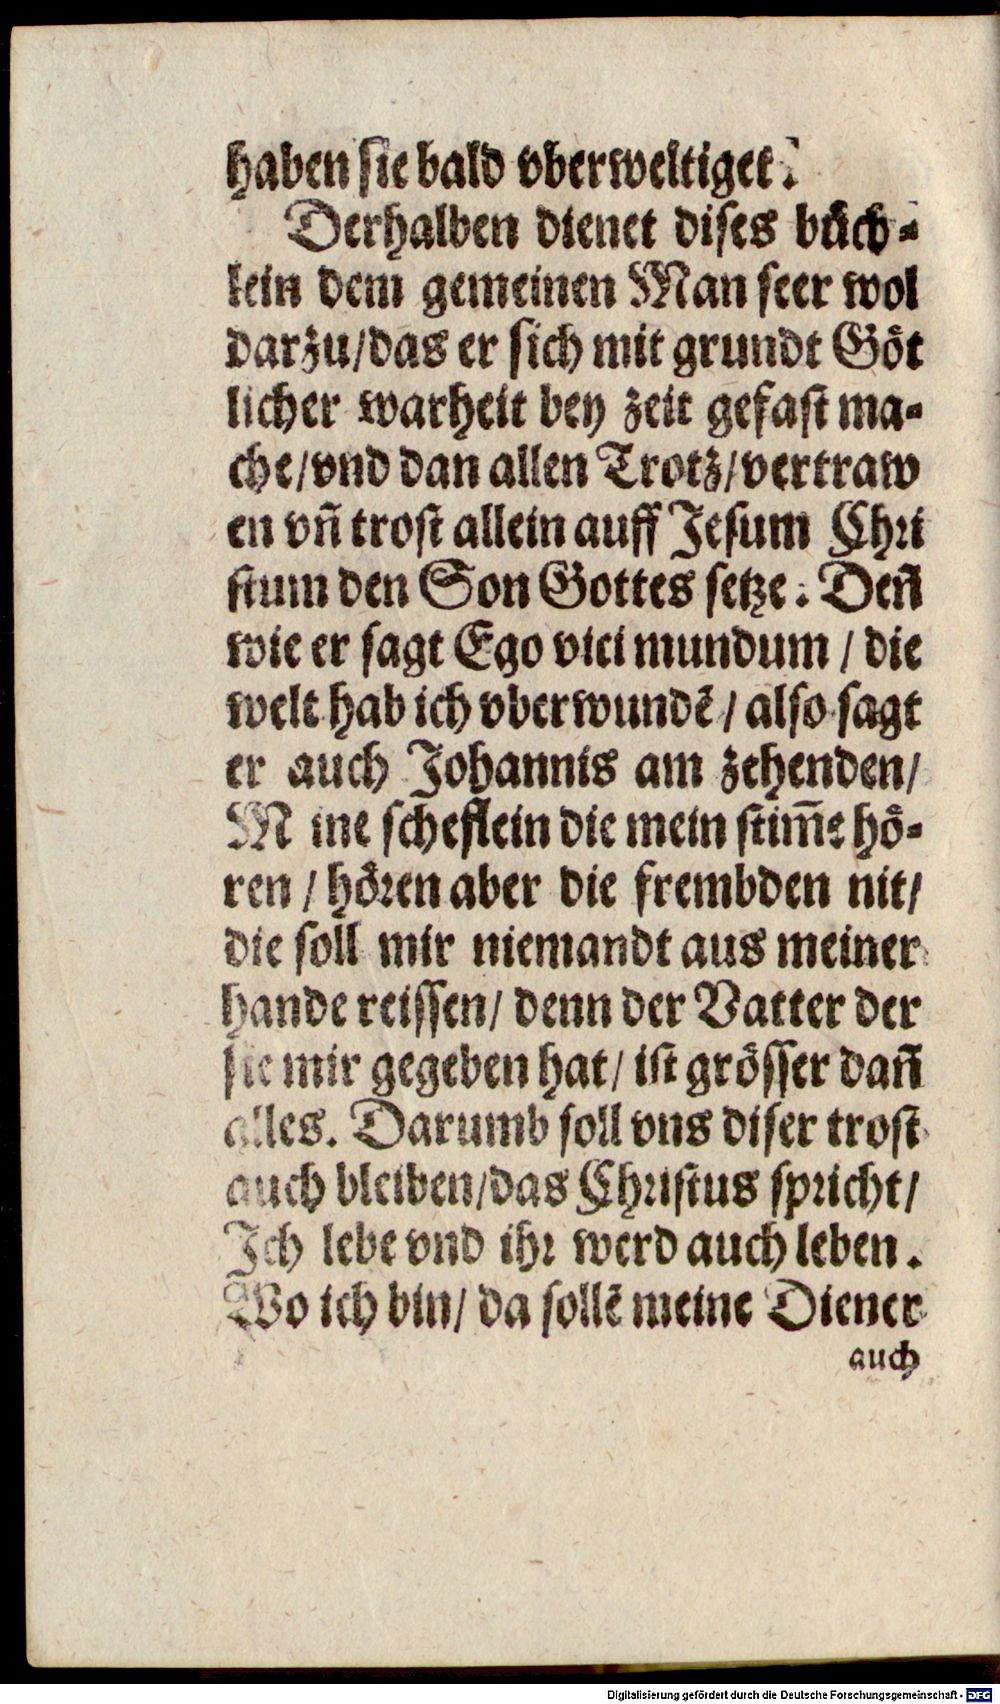 haben sie bald vberweltiget.
Derhalben dienet dises bůch-
lein dem gemeinen Man seer wol
darzu/das er sich mit grundt Göt
licher warheit bey zeit gefast ma-
che/vnd dan allen Trotz/vertraw
en vñ trost allein auff Jesum Chri
stum den Son Gottes setze. Deñ
wie er sagt Ego vici mundum / die
welt hab ich vberwundē / also sagt
er auch Johannis am zehenden/
M ine scheflein die mein stim̄e hö-
ren / hören aber die frembden nit/
die soll mir niemandt aus meiner
hande reissen/ denn der Vatter der
sie mir gegeben hat/ ist grösser dañ
alles. Darumb soll vns diser trost
auch bleiben/das Christus spricht/
Ich lebe vnd ihr werd auch leben.
Wo ich bin/ da sollē meine Diener
auch
Digitalisierung gefördert durch die Deutsche Forschungsgemeinschaft - DFG